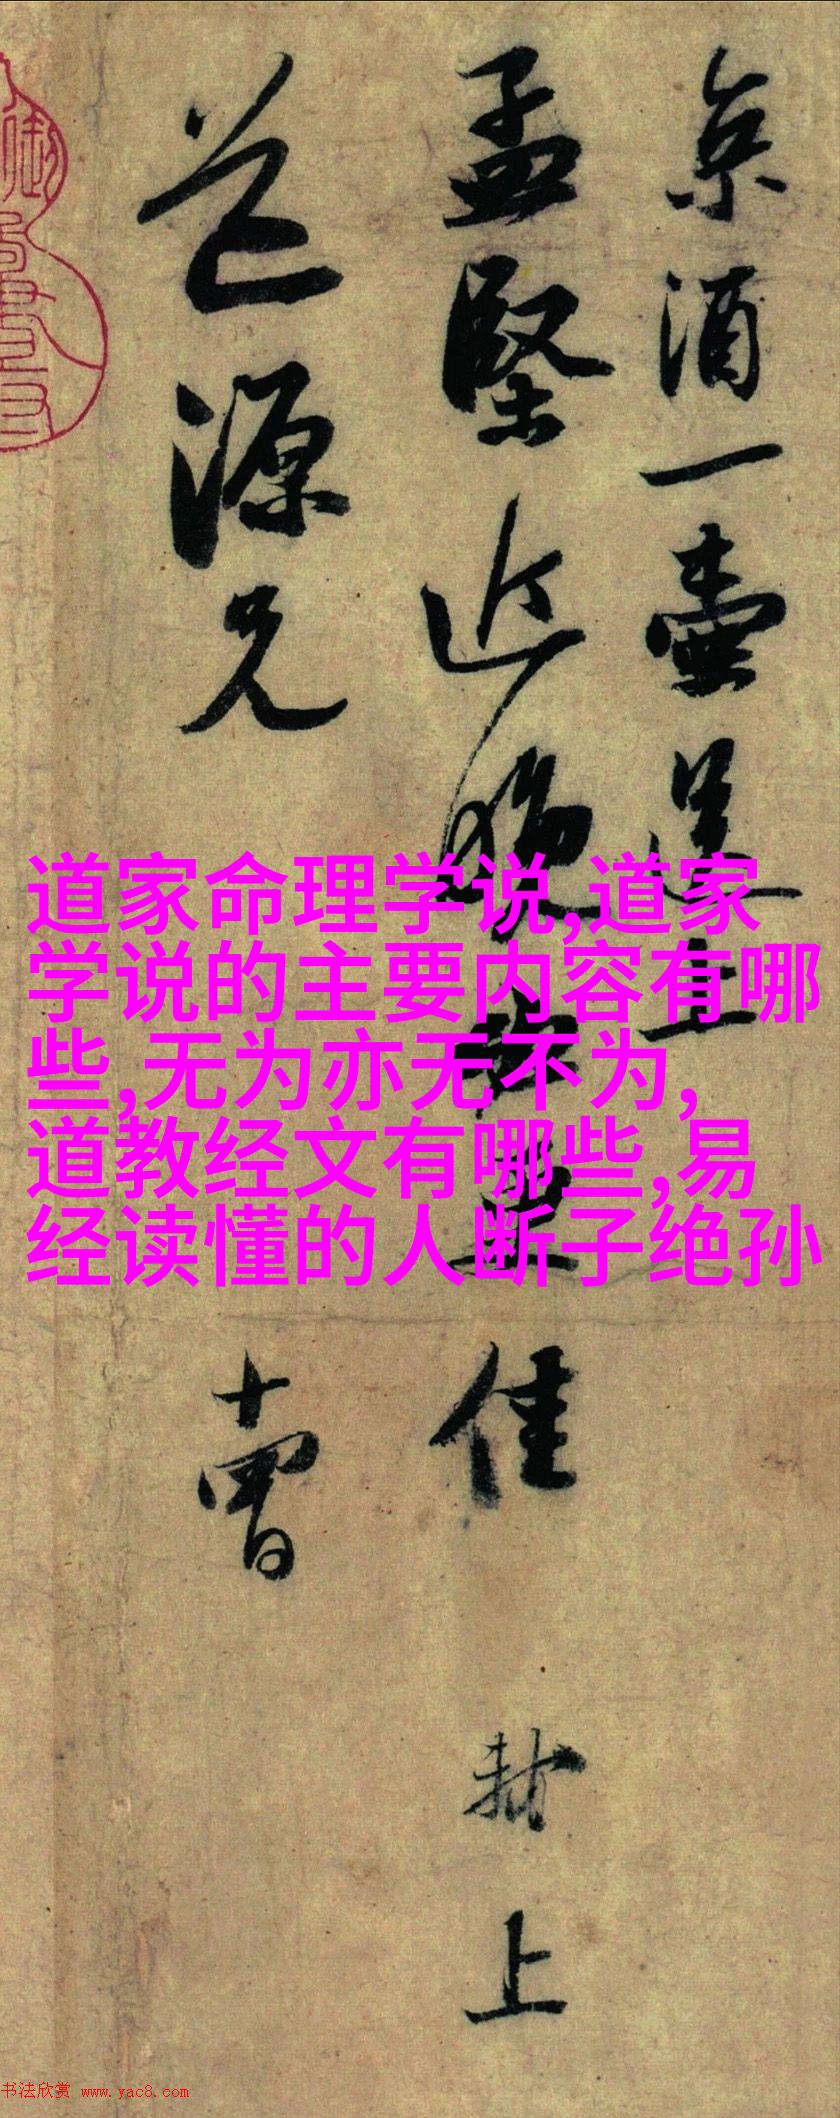 京酒一壶送上
孟坚近晚必更佳
轼上
道源兄
十曹
道家命理学说,道家
学说的主要内容有哪
些,无为亦无不为,
道教经文有哪些,易
经读懂的人断子绝孙
书法欣赏 www.yac8.com